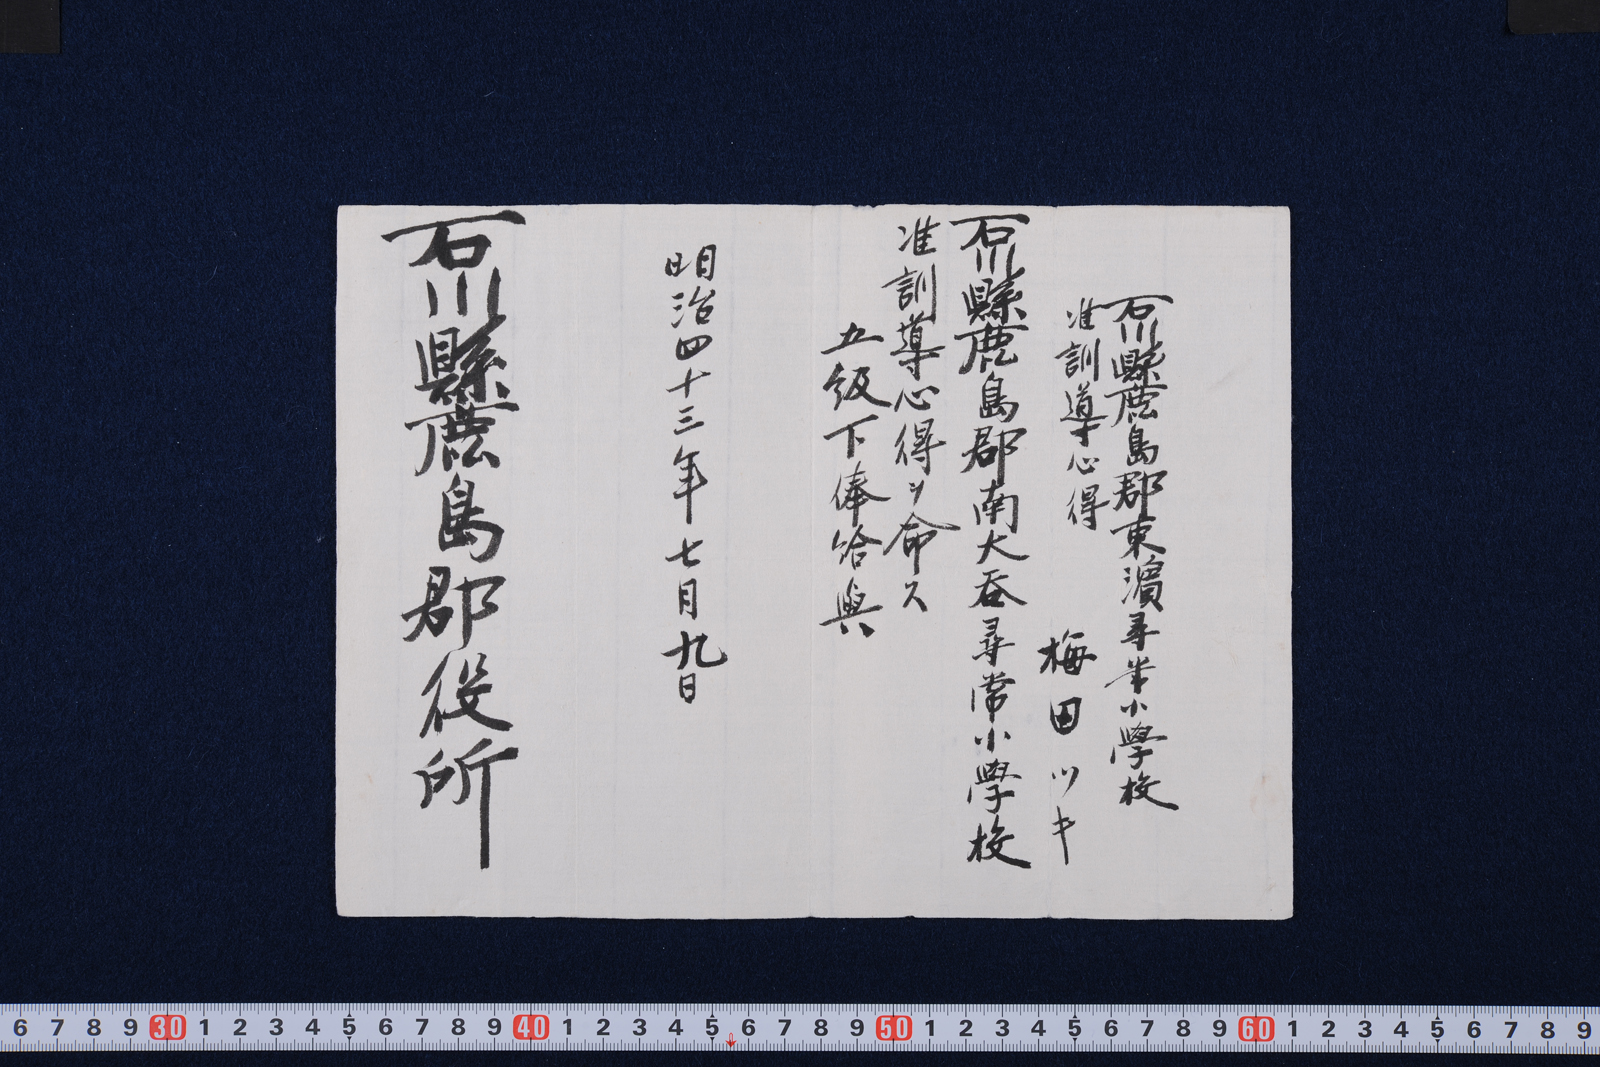 石川縣鹿島郡東濵尋常小學校
准訓導心得
梅田ツキ
石川縣鹿島郡南大呑尋常小學校
准訓導心得ヲ命ス
五級下俸給與
明治四十三年七月九日
石川縣鹿島郡役所
6 7 8 9 30 1 2 3 4 5 6 7 8 9 40 1 2 3 4 5 6 7 8 9 50 1 2 3 4 5 6 7 8 9 60 1 2 3 4 5 6 7 8 9